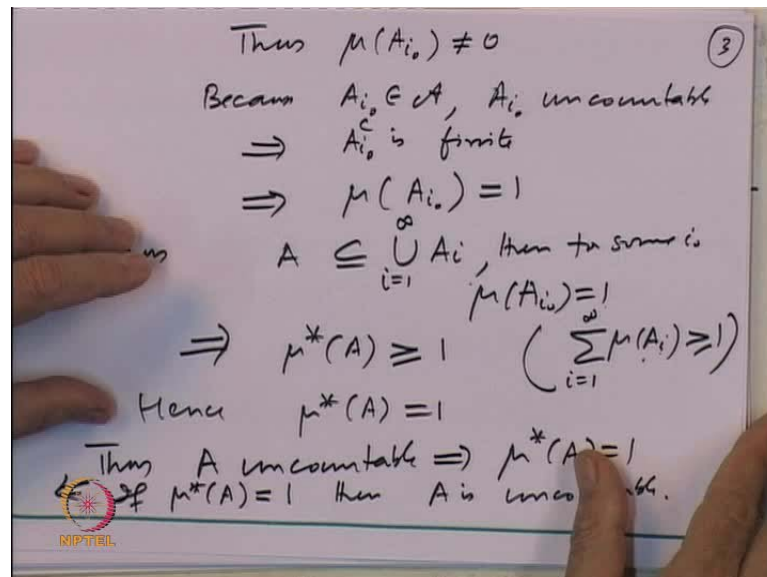 Thus μ(A_{i₀}) ≠ 0
3
Because A_{i₀} ∈ 𝒜, A_{i₀} uncountable
⟹ A_{i₀}^c is finite
⟹ μ(A_{i₀}) = 1
A ⊆ ⋃_{i=1}^∞ A_i, then for some i₀
μ(A_{i₀}) = 1
⟹ μ*(A) ≥ 1 (∑_{i=1}^∞ μ(A_i) ≥ 1)
Hence μ*(A) = 1
Thus A uncountable ⟹ μ*(A) = 1
If μ*(A) = 1 then A is
NPTEL